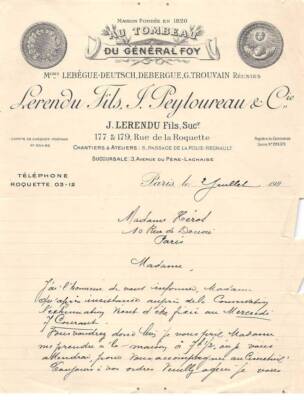 MAISON FONDÉE EN 1820
AU TOMBEAU
DU GÉNÉRAL FOY
Mons LEBÈGUE-DEUTSCH, DEBERGUE, G. TROUVAIN RÉUNIES
Lerendu Fils, J. Peyloureau & Cie
J. LERENDU Fils, Sucr
177 & 179, Rue de la Roquette
CHANTIERS & ATELIERS : 5, PASSAGE DE LA FOLIE-REGNAULT
SUCCURSALE : 3, AVENUE DU PÈRE-LACHAISE
TÉLÉPHONE
ROQUETTE 03-12
Paris le 2 Juillet 191
Madame
10 Rue de
Paris
Madame,
J'ai l'honneur de vous informer, Madame
qu'après auprès de la
l'exhumation vient d'être fixée au Mercredi
7 Courant.
Vous voudrez donc bien je vous prie Madame
me prendre à la maison à
attendrai, pour vous accompagner au Cimetière
Toujours à vos ordres Veuillez agréer je vous